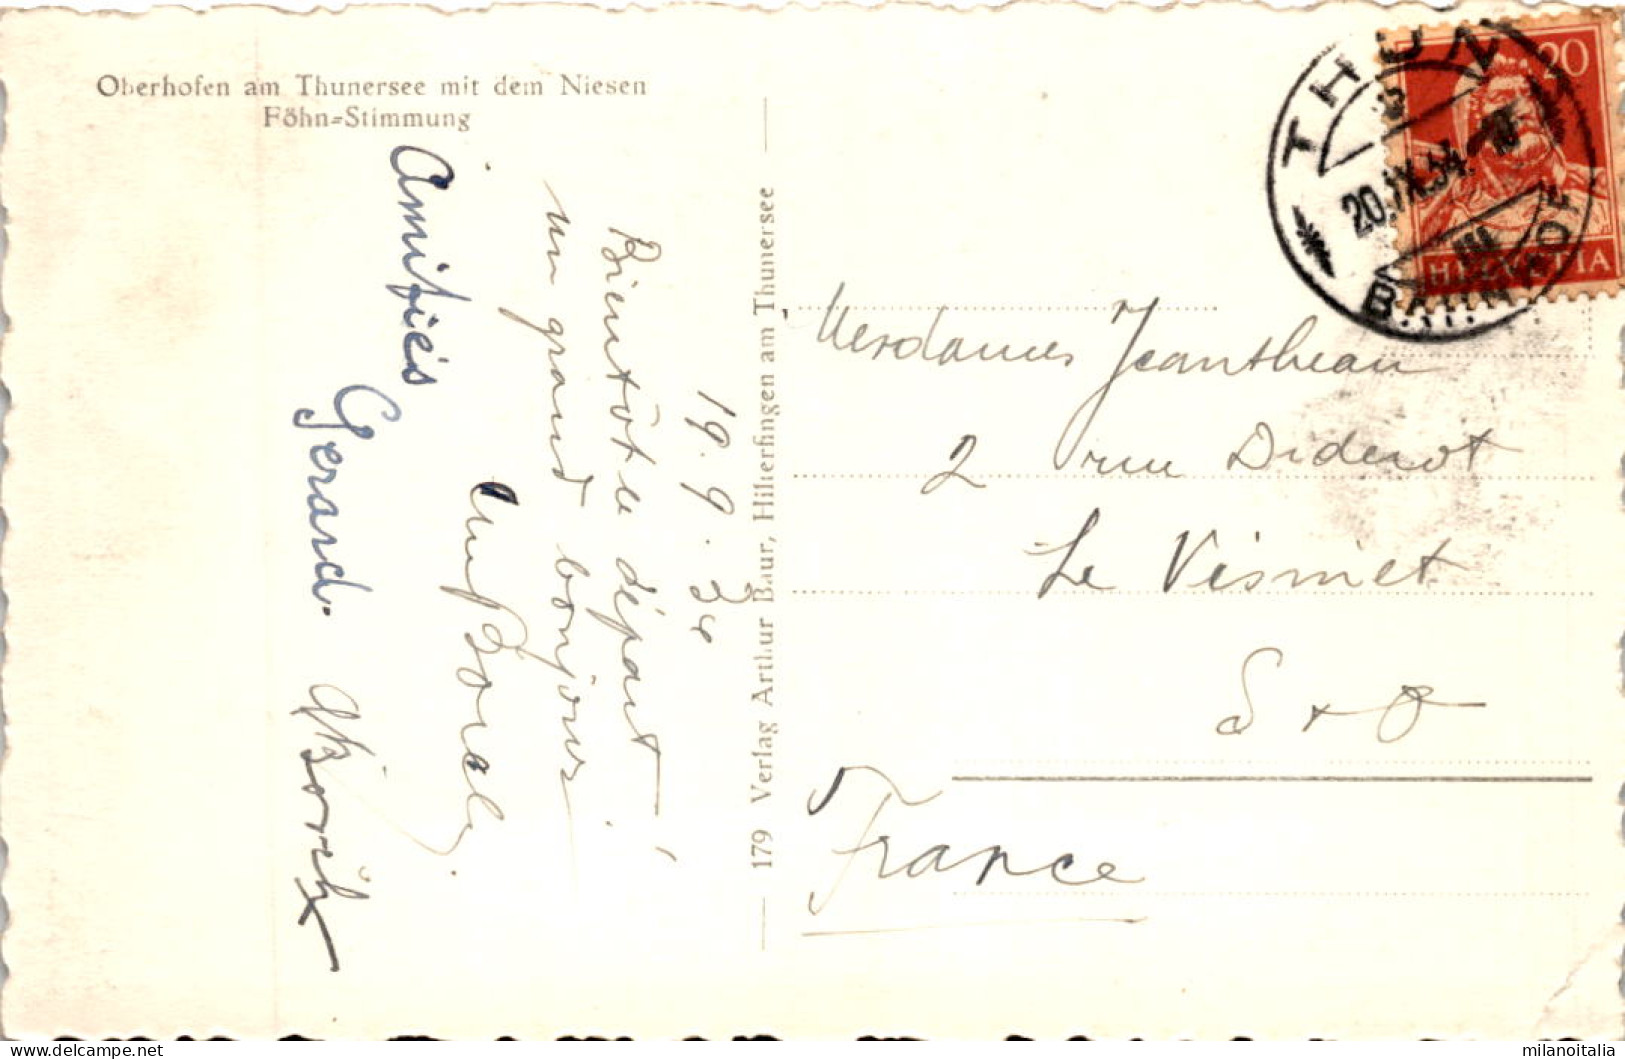 Oberhofen am Thunersee mit dem Niesen
Föhn=Stimmung
19.9.34
Bientôt le départ
un grand bonjour
Amitiés
Gerard.
179 Verlag Arthur Baur, Hilterfingen am Thunersee
THUN
20.IX.34.
BAHNHOF
20
HELVETIA
Mesdames Jeantheau
2 rue Diderot
Le Vésinet
S + O
France
milanoitalia